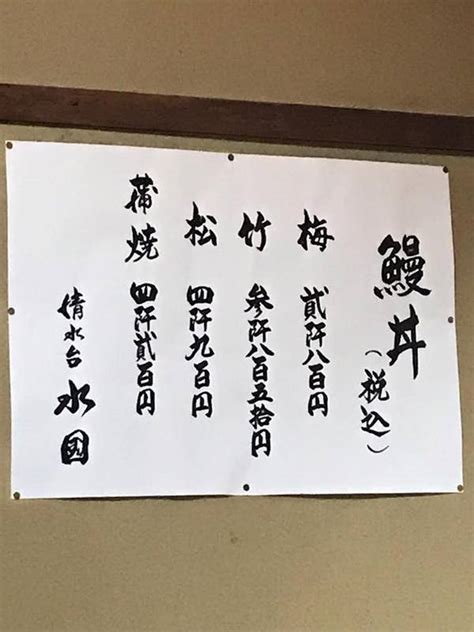 鰻丼(税込)
梅 貳阡八百円
竹 参阡八百五拾円
松 四阡九百円
蒲焼 四阡貳百円
清水台 水園